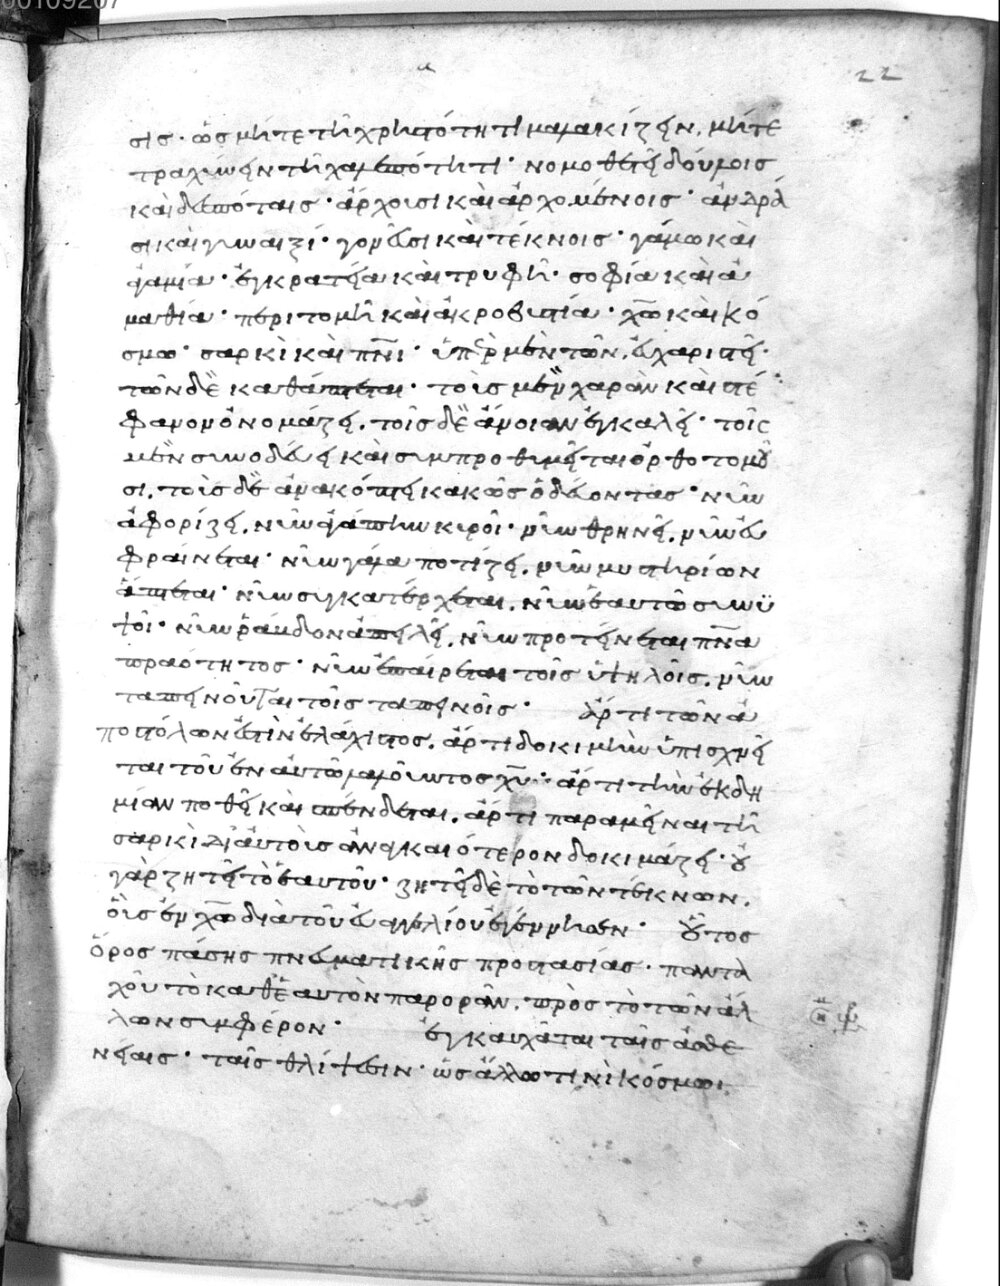 σις· ὡς μήτε τῆ χρηστότητι μαλακίζειν, μήτε
τραχύνειν τῆ χαλεπότητι· νομοθετεῖ δούλοις
καὶ δεσπόταις· ἄρχουσι καὶ ἀρχομένοις· ἀνδρά
σι καὶ γυναιξί· γονεῦσι καὶ τέκνοις· γάμω καὶ
ἀγαμία· ἐγκρατεία καὶ τρυφῆ· σοφία καὶ ἀ
μαθία· περιτομῆ καὶ ἀκροβυστία· χω̅ καὶ κό
σμω· σαρκὶ καὶ πνι̅· ὑπὲρ μὲν τῶν, εὐχαριστεῖ·
τῶν δὲ καθάπτεται· τοὺς μὲν χαρὰν καὶ στέ
φανον ὀνομάζει, τοῖς δὲ ἄνοιαν ἐγκαλεῖ· τοῖς
μὲν συνοδεύει καὶ συμπροθυμεῖται ὀρθοτομοῦ
σι, τοὺς δὲ ἀνακόπτει κακῶς ὁδεύοντας· νῦν
ἀφορίζει, νῦν ἀγάπην κυροῖ· νῦν θρηνεῖ, νῦν εὐ
φραίνεται· νῦν γάλα ποτίζει, νῦν μυστηρίων
ἅπτεται· νῦν συγκατέρχεται, νῦν ἑαυτῶ συνυ
ψοῖ· νῦν ῥάβδον ἀπειλεῖ, νῦν προτείνεται πνα̅
πραότητος· νῦν ἐπαίρεται τοῖς ὑψηλοῖς, νῦν
ταπεινοῦται τοῖς ταπεινοῖς· ἄρτι τῶν ἀ
ποστόλων ἐστὶν ἐλάχιστος, ἄρτι δοκιμὴν ὑπισχνεῖ
ται τοῦ ἐν αὐτῶ λαλοῦντος χυ̅· ἄρτι τὴν ἐκδη
μίαν ποθεῖ καὶ σπένδεται, ἄρτι παραμεῖναι τῆ
σαρκὶ δι' αὐτοὺς ἀναγκαιότερον δοκιμάζει· οὐ
γὰρ ζητεῖ τὸ ἑαυτοῦ· ζητεῖ δὲ τὸ τῶν τέκνων,
οὓς ἐν χω̅ διὰ τοῦ εὐαγγελίου ἐγέννησεν· οὗτος
ὅρος πάσης πνευματικῆς προστασίας· πανταχοῦ
τὸ καθ' ἑαυτὸν παρορᾶν, πρὸς τὸ τῶν ἄλ
λων συμφέρον· ἐγκαυχᾶται ταῖς ἀσθε
νείαις· ταῖς θλίψεσιν· ὡς ἄλλω τινὶ κόσμωι